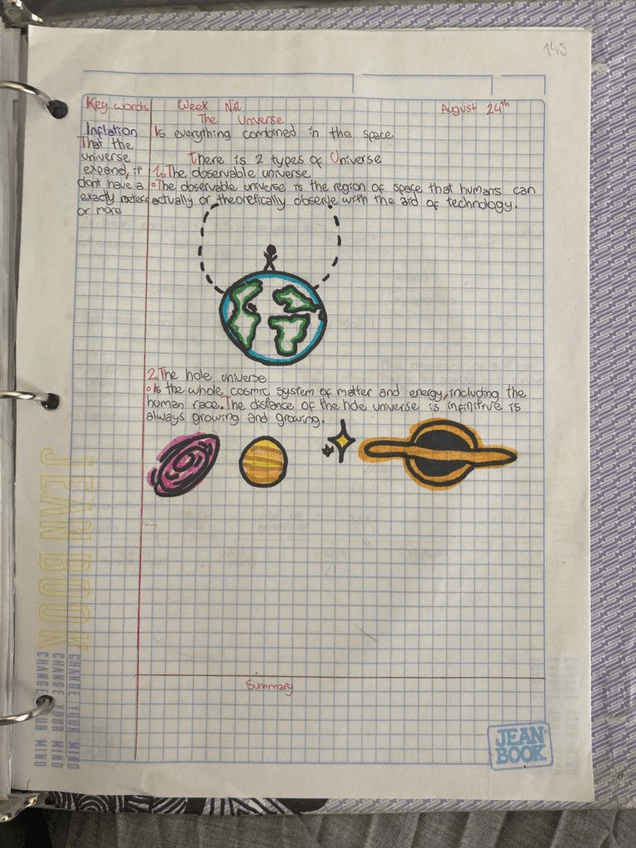 145
Key words Week Nº1 August 24th
The Unverse
Inflation
That the
universe
expand, it
dont have a
exactly
or more
Is everything combined in the space
There is 2 types of Universe
1. The observable universe
The observable universe is the region of space that humans can
actually or theoretically observe with the aid of technology.
2. The hole universe
Is the whole cosmic system of matter and energy, including the
human race. The distance of the hole universe is infinitive is
always growing and growing.
Summary
JEAN BOOK
CHANGE YOUR MIND
CHANGE YOUR MIND
CHANGE YOUR MIND
JEAN
BOOK